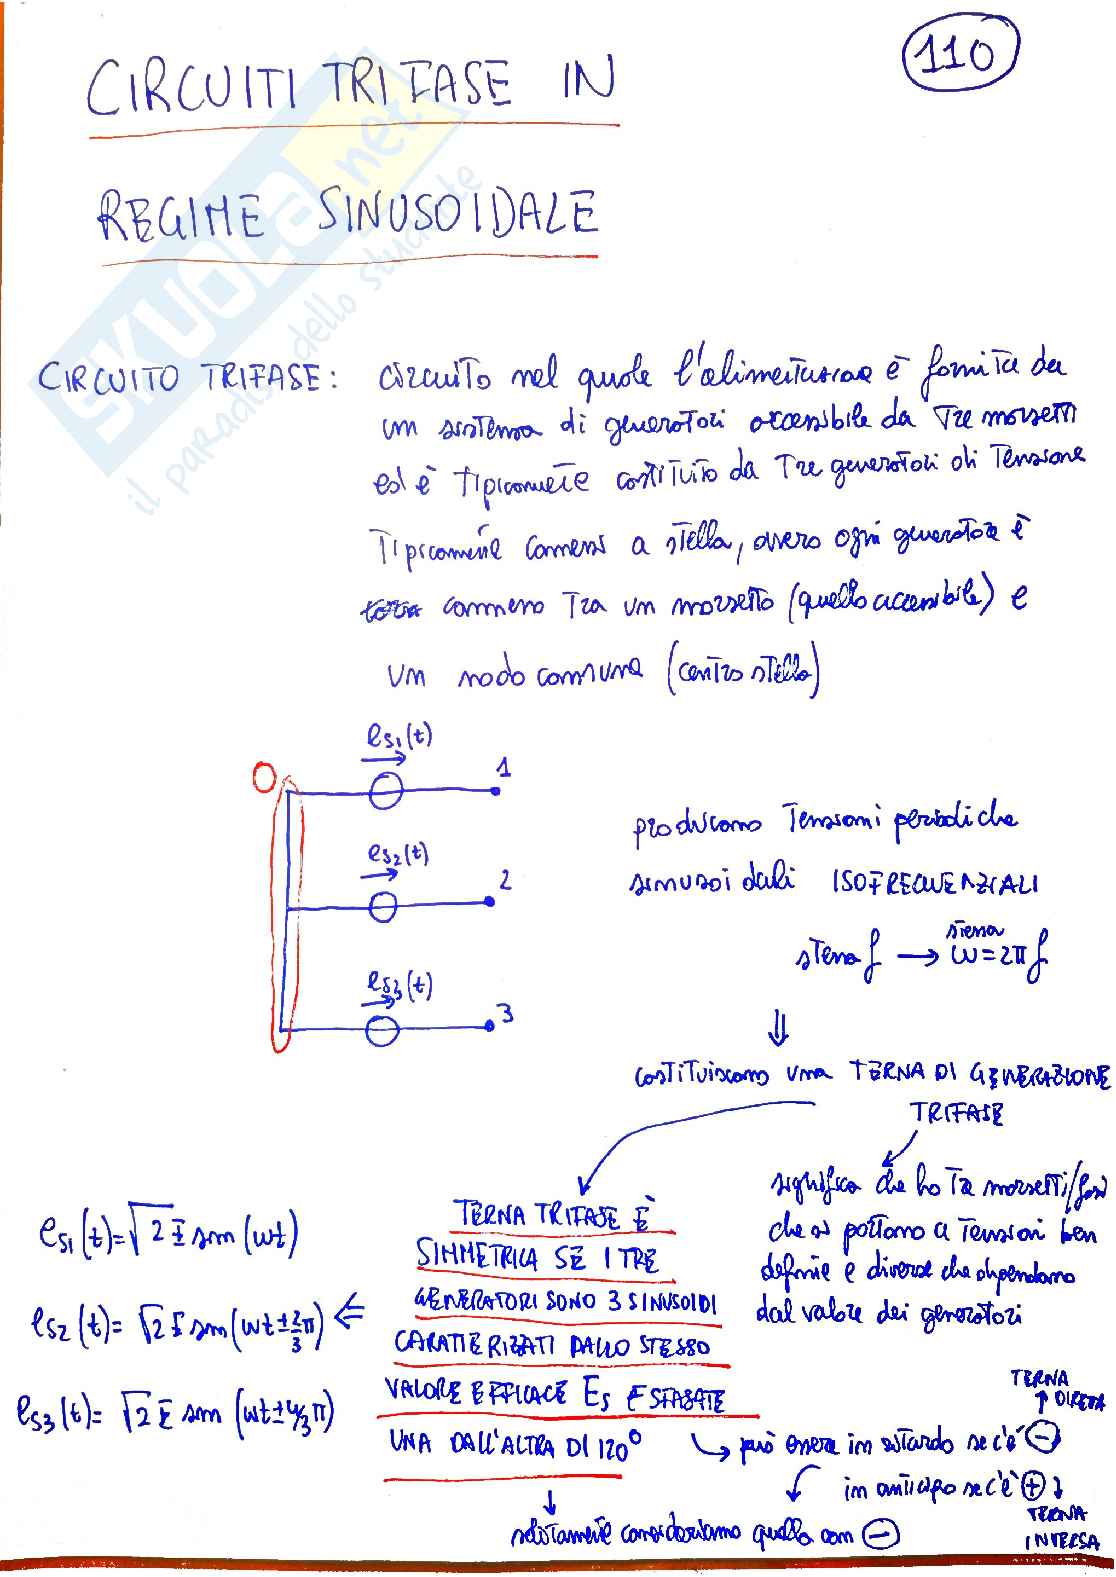 110
CIRCUITI TRIFASE IN
REGIME SINUSOIDALE
SKUOLA.net
il paradiso dello studente
CIRCUITO TRIFASE: circuito nel quale l'alimentazione è fornita da
un sistema di generatori accessibile da tre morsetti
ed è tipicamente costituito da tre generatori di tensione
tipicamente connessi a stella, ovvero ogni generatore è
connesso tra un morsetto (quello accessibile) e
un nodo comune (centro stella)
eS1(t)
O
1
eS2(t)
2
eS3(t)
3
producono tensioni periodiche
sinusoidali ISOFREQUENZIALI
stessa f → stessa ω=2πf
⇓
costituiscono una TERNA DI GENERAZIONE
TRIFASE
significa che ho tre morsetti/fasi
che si portano a tensioni ben
definite e diverse che dipendono
dal valore dei generatori
TERNA TRIFASE È
SIMMETRICA SE I TRE
GENERATORI SONO 3 SINUSOIDI
CARATTERIZZATI DALLO STESSO
VALORE EFFICACE ES E SFASATE
UNA DALL'ALTRA DI 120°
eS1(t)=√2 E sin(ωt)
eS2(t)=√2 E sin(ωt±2/3π) ⇐
eS3(t)=√2 E sin(ωt±4/3π)
TERNA
↑ DIRETTA
↳ può essere in ritardo se c'è ⊖
in anticipo se c'è ⊕
TERNA
INVERSA
solitamente consideriamo quella con ⊖